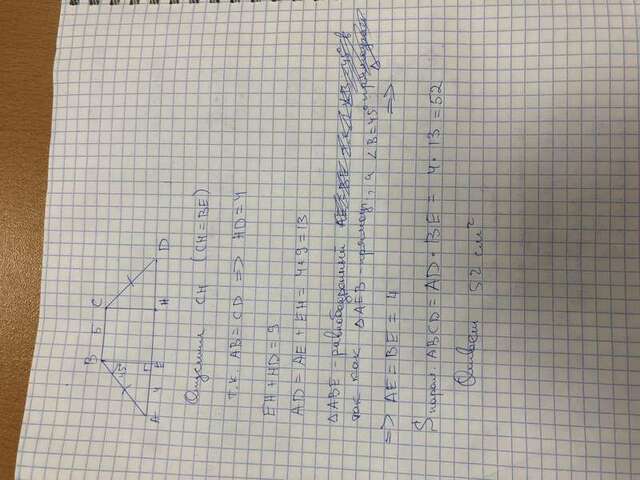 B 5 C
45°
A 4 E H D
Опустим CH (CH = BE)
т.к. AB = CD => HD = 4
EH + HD = 9
AD = AE + EH = 4+9 = 13
△ABE - равнобедренный
так как △AEB - прямоуг, а ∠B = 45°
=> AE = BE = 4 =>
Sпарал. ABCD = AD · BE = 4 · 13 = 52
Ответ 52 см²